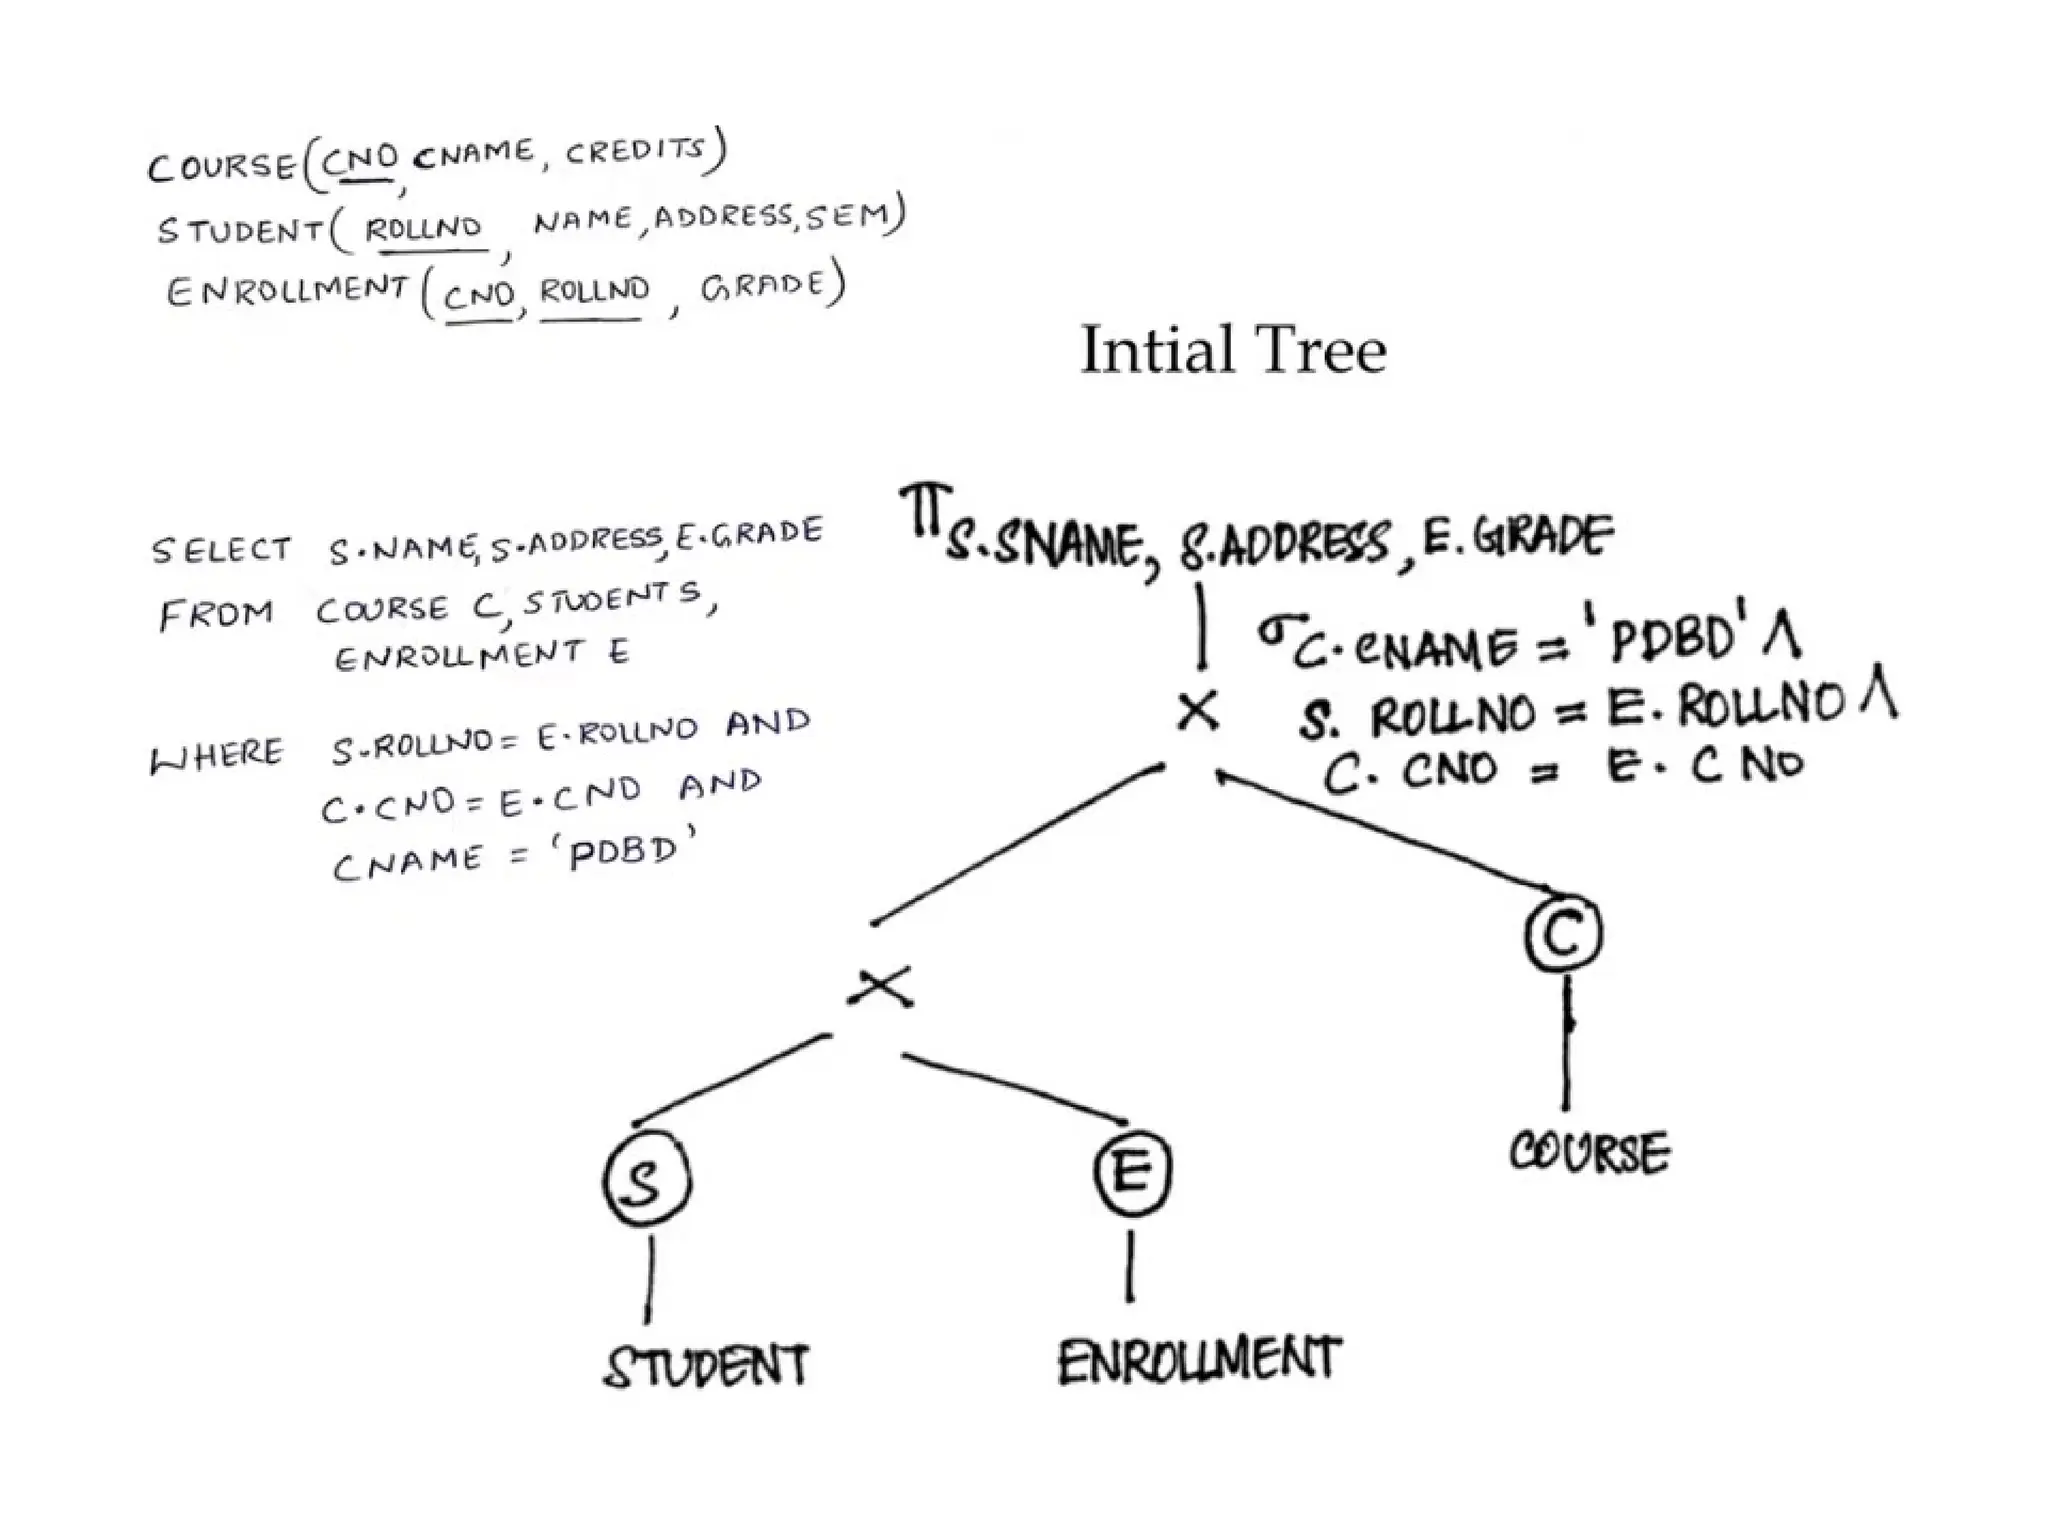 COURSE(CNO, CNAME, CREDITS)
STUDENT( ROLLNO, NAME, ADDRESS, SEM)
ENROLLMENT (CNO, ROLLNO, GRADE)
Intial Tree
SELECT S.NAME, S.ADDRESS, E.GRADE
FROM COURSE C, STUDENT S,
ENROLLMENT E
WHERE S.ROLLNO = E.ROLLNO AND
C.CNO = E.CNO AND
CNAME = 'PDBD'
π S.SNAME, S.ADDRESS, E.GRADE
σ C.CNAME = 'PDBD' ∧
× S. ROLLNO = E. ROLLNO ∧
C. CNO = E. CNO
C
×
COURSE
S E
STUDENT ENROLLMENT